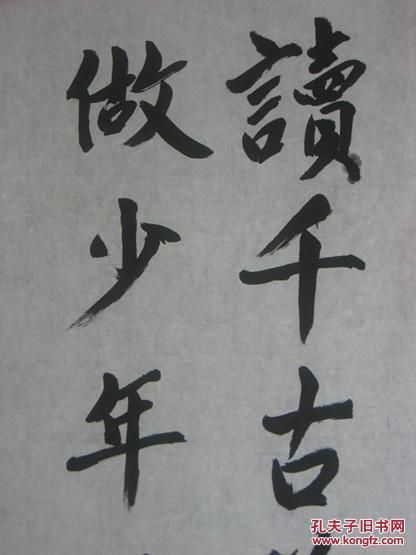 讀千古
做少年
孔夫子旧书网
www.kongfz.com